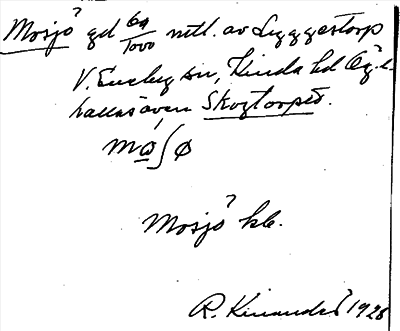 Mosjö gd 69/1000 mtl. av Lyggestorp
V. Eneby sn, Kinda hd Ög.l.
kallas även Skogtorpet.
mὼʃø
Mosjö kb.
R. Kinander 1928